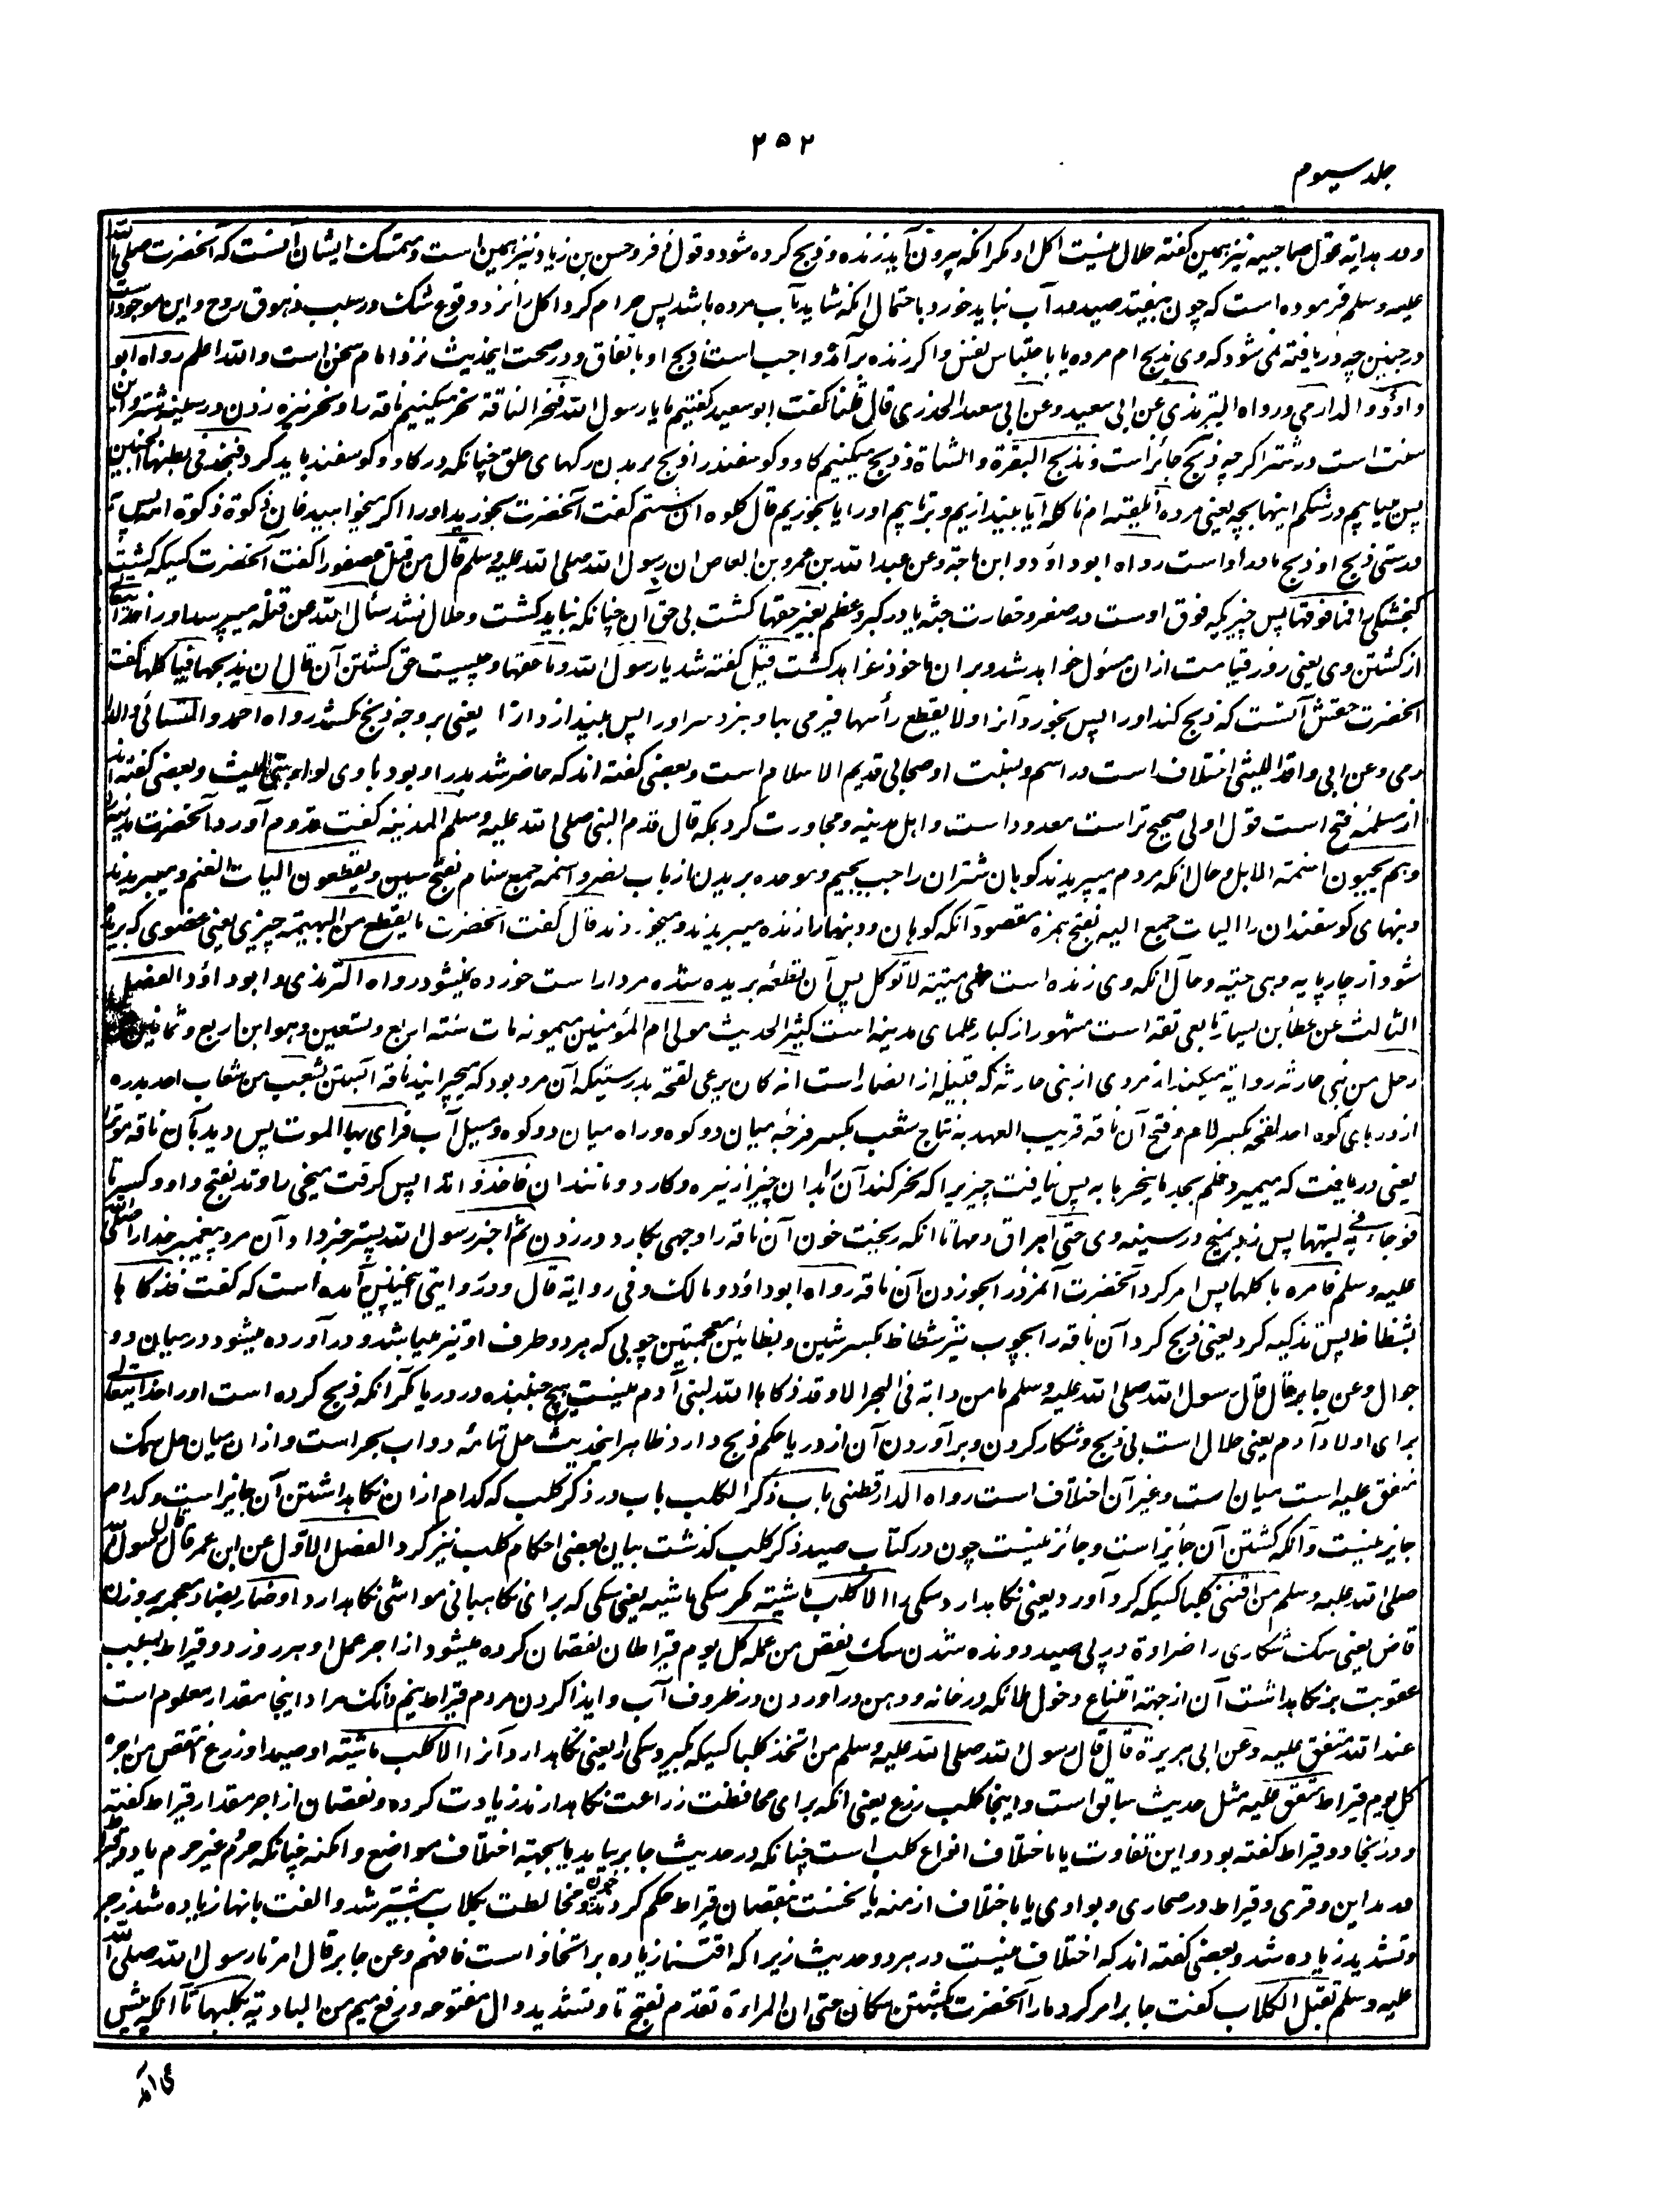 ۲۵۲
جلد سیوم
و در هدایه قول صاحبیه نیز همین گفته حلال نیست اکل او مگر انکه بیرون آید زنده و ذبح کرده شود و قول زفر و حسن بن زیاد نیز همین است و متمسک ایشان آنست که آنحضرت صلی الله
علیه وسلم فرموده است که چون بیفتد صید در آب نباید خورد باحتمال انکه شاید بآب مرده باشد پس حرام کرد اکل را نزد وقوع شک در سبب زهوق روح و این موجود است
در جنین چه دریافته نمی شود که وی بذبح ام مرده یا باحتباس نفس و اگر زنده برآمد واجب است ذبح او باتفاق و در صحت این حدیث نزد امام سخن است والله اعلم رواه ابو
داؤد والدارمی و رواه الترمذی عن ابی سعید وعن ابی سعید الخدری قال قلنا گفت ابو سعید گفتیم ما یا رسول الله ننحر الناقة نحر میکنیم ناقه را و نحر نیزه زدن در سینه شتر و این
سنت است در شتر اگرچه ذبح جائز است و نذبح البقرة والشاة و ذبح میکنیم گاو و گوسفند را و ذبح بریدن رگهای حلق چنانکه در گاو و گوسفند باید کرد فنجد فی بطنها الجنین
پس مییابیم در شکم اینها بچه یعنی مرده أنلقیه ام ناکله آیا بیندازیم و بر تابیم او را یا بخوریم قال کلوه ان شئتم گفت آنحضرت بخورید او را اگر میخواهید فان ذکوته ذکوة امه پس
درستی ذبح او ذبح مادر او است رواه ابو داؤد و ابن ماجة وعن عبد الله بن عمرو بن العاص ان رسول الله صلی الله علیه وسلم قال من قتل عصفورا گفت آنحضرت کسیکه کشت
گنجشکی را فما فوقها پس چیزیکه فوق اوست در صغر و حقارت جثه یا در کبر و عظم بغیر حقها کشت بی حق آن چنانکه نباید کشت و حلال نشد سأل الله عن قتله میپرسد او را خدا تعالی
از کشتن وی یعنی روز قیامت ازان مسؤل خواهد شد و بران ماخوذ خواهد گشت قیل گفته شد یا رسول الله وما حقها و چیست حق کشتن آن قال ان یذبحها فیاکلها گفت
آنحضرت حقش آنست که ذبح کند او را پس بخورد آنرا ولا یقطع رأسها فیرمی بها و نبرد سر او را پس بیندازد آنرا یعنی بر وجه ذبح نکشد رواه احمد والنسائی والدا
رمی وعن ابی واقد اللیثی اختلاف است در اسم و نسبت او صحابی قدیم الاسلام است و بعضی گفته اند که حاضر شد بدر او بود با وی لواء بنی اللیث و بعضی گفته اند
از مسلمه فتح است قول اولی صحیح تر است معدود است در اهل مدینه و مجاورت کرد بمکه قال قدم النبی صلی الله علیه وسلم المدینة گفت قدوم آورد آنحضرت مدینه را
وهم یجبون اسنمة الابل و حال انکه مردم میبریدند کوهان شتران را جب بجیم و موحده بریدن از باب نصر و اسنمه جمع سنام بفتح سین ویقطعون الیات الغنم و میبریدند
دنبهای گوسفندان را الیات جمع الیه بفتح همزه مقصود آنکه کوهان و دنبها را زنده میبریدند و میخوردند قال گفت آنحضرت ما یقطع من البهیمة چیزی یعنی عضوی که بریده
شود از چارپایه وهی حیة و حال انکه وی زنده است فهی میتة لا تؤکل پس آن قطعه بریده شده مردار است خورده نمیشود رواه الترمذی و ابو داؤد الفصل
الثالث عن عطا بن یسار تابعی ثقه است مشهور از کبار علمای مدینه است کثیر الحدیث مولی ام المؤمنین میمونه مات سنة اربع وتسعین وهو ابن اربع وثمانین
رجل من بنی حارثه روایه میکند از مردی از بنی حارثه که قبیله از انصار است انه کان یرعی لقحة بدرستیکه آن مرد بود که میچرانید ناقه آبستن بشعب من شعاب احد بدره
از درهای کوه احد لقحه بکسر لام و فتح آن ناقه قریب العهد به نتاج شعب بکسر فرجه میان دو کوه و راه میان دو کوه و مسیل آب فرای بها الموت پس دید بآن ناقه موت را
یعنی دریافت که میمیرد فلم یجد ما ینحرها به پس نیافت چیزیرا که نحر کند آنرا بدان چیز از نیزه و کارد و مانند آن فاخذ وتدا پس گرفت میخی را وتد بفتح واو و کسر تا
فوجاء به فی لبتها پس زد میخ در سینه وی حتی اهراق دمها تا انکه ریخت خون آن ناقه را وجی بکارد در زدن ثم اخبر رسول الله پستر خبر داد آن مرد پیغمبر خدا را صلی الله
علیه وسلم فامره باکلها پس امر کرد آنحضرت آنمرد را بخوردن آن ناقه رواه ابو داؤد و مالک وفی روایة قال و در روایتی اینچنین آمده است که گفت فذکاها
بشظاظ پس تذکیه کرد یعنی ذبح کرد آن ناقه را بچوب تیز شظاظ بکسر شین و بظائین معجمتین چوبی که هر دو طرف او تیز میباشد و درآورده میشود در میان دو
جوال وعن جابر قال قال رسول الله صلی الله علیه وسلم ما من دابة فی البحر الا وقد ذکاها الله لبنی آدم نیست هیچ جنبنده در دریا مگر انکه ذبح کرده است او را خدا تعالی
برای اولاد آدم یعنی حلال است بی ذبح و شکار کردن و برآوردن آن از دریا حکم ذبح دارد ظاهر این حدیث حل تمامه دواب بحر است و ازان میان حل سمک
متفق علیه است میان امت و غیر آن اختلاف است رواه الدارقطنی باب ذکر الکلب باب در ذکر کلب که کدام ازان نگاهداشتن آن جائز است و کدام
جایز نیست و آنکه کشتن آن جائز است و جائز نیست چون در کتاب صید ذکر کلب گذشت بیان بعضی احکام کلب نیز کرد الفصل الاول عن ابن عمر قال قال رسول الله
صلی الله علیه وسلم من اقتنی کلبا کسیکه گرد آورد یعنی نگاهدارد سگی را الا کلب ماشیة مگر سگی ماشیه یعنی سگی که برای نگاهبانی مواشی نگاهدارد او ضار بضاد معجمه بر وزن
قاض یعنی سگ شکاری را ضراوة در پی صید دونده شدن سگ نقص من عمله کل یوم قیراطان نقصان کرده میشود از اجر عمل او هر روز دو قیراط بسبب
عقوبت بر نگاهداشت آن از جهة امتناع دخول ملائکه در خانه و دهن درآوردن در ظروف آب و ایذا کردن مردم قیراط نیم دانک مراد اینجا مقدار معلوم است
عند الله متفق علیه وعن ابی هریرة قال قال رسول الله صلی الله علیه وسلم من اتخذ کلبا کسیکه بگیرد سگی را یعنی نگاهدارد آنرا الا کلب ماشیة او صید او زرع انتقص من اجره
کل یوم قیراط متفق علیه مثل حدیث سابق است و اینجا کلب زرع یعنی انکه برای محافظت زراعت نگاهدارند زیادت کرده و نقصان از اجر مقدار قیراط گفته
و در آنجا دو قیراط گفته بود و این تفاوت یا باختلاف انواع کلب است چنانکه در حدیث جابر بیاید یا بجهة اختلاف مواضع و امکنه چنانکه حرم و غیر حرم یا دو قیراط
در مداین و قری و قیراط در صحاری و بوادی یا باختلاف ازمنه یا نخست بنقصان قیراط حکم کردند و چون مخالطت بکلاب بیشتر شد و الفت بانها زیاده شد زجر
و تشدید زیاده شد و بعضی گفته اند که اختلاف نیست در هر دو حدیث زیرا که اقتنا زیاده بر اتخاذ است فافهم وعن جابر قال امرنا رسول الله صلی الله
علیه وسلم بقتل الکلاب گفت جابر امر کرد مارا آنحضرت بکشتن سگان حتی ان المراءة تقدم بفتح تا و تشدید دال مفتوحه و رفع میم من البادیة بکلبها تا آنکه پیش
می آمد